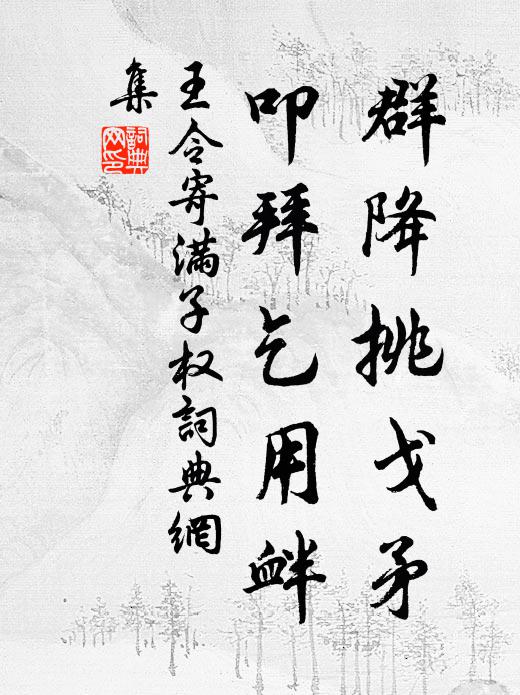 群降挑戈矛
叩拜乞用衅
王令寄满子权詞典網
集
詞典
网印